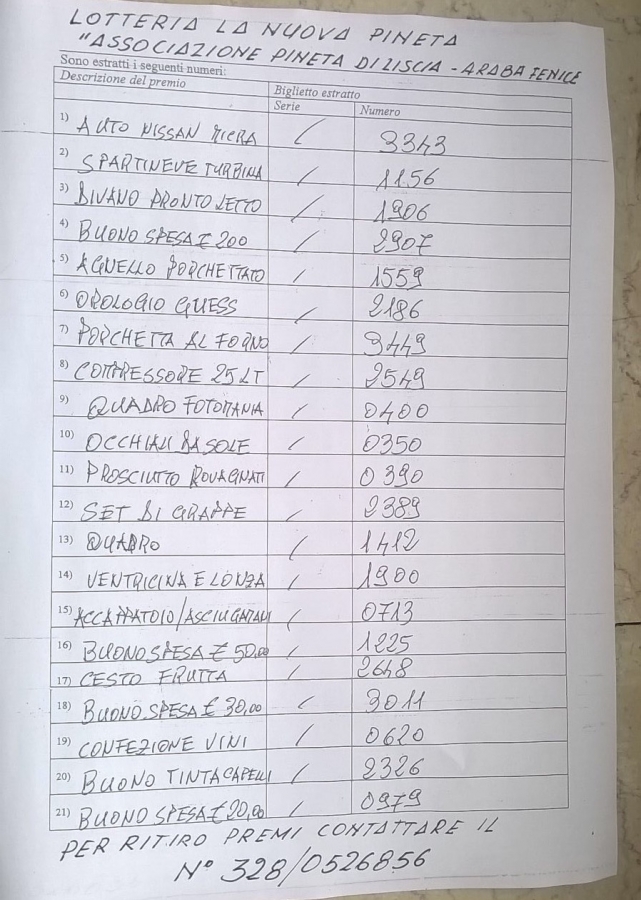 LOTTERIA LA NUOVA PINETA
"ASSOCIAZIONE PINETA DI LISCIA - ARABA FENICE
Sono estratti i seguenti numeri:
Descrizione del premio Biglietto estratto
Serie Numero
1) AUTO NISSAN MICRA / 3343
2) SPARTINEVE TURBINA / 1156
3) DIVANO PRONTO LETTO / 1906
4) BUONO SPESA € 200 / 2907
5) AGNELLO PORCHETTATO / 1559
6) OROLOGIO GUESS / 2186
7) PORCHETTA AL FORNO / 3449
8) COMPRESSORE 25 LT / 2549
9) QUADRO FOTOMANIA / 0400
10) OCCHIALI DA SOLE / 0350
11) PROSCIUTTO ROVAGNATI / 0390
12) SET DI GRAPPE / 2389
13) QUADRO / 1412
14) VENTRICINA E LONZA / 1900
15) ACCAPPATOIO/ASCIUGAMANI / 0713
16) BUONO SPESA € 50,00 / 1225
17) CESTO FRUTTA / 2648
18) BUONO SPESA € 30,00 / 3011
19) CONFEZIONE VINI / 0620
20) BUONO TINTA CAPELLI / 2326
21) BUONO SPESA € 20,00 / 0979
PER RITIRO PREMI CONTATTARE IL
N° 328/0526856